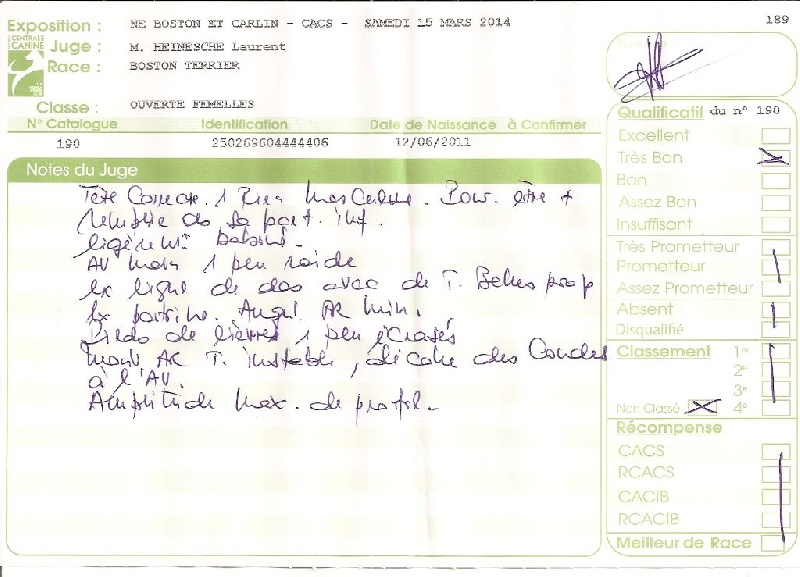 189
Exposition : NE BOSTON ET CARLIN - CACS - SAMEDI 15 MARS 2014
CENTRALE CANINE
Juge : M. HEINESCHE Laurent
Race : BOSTON TERRIER
Classe : OUVERTE FEMELLES
N° Catalogue Identification Date de Naissance à Confirmer
190 250269604444406 12/06/2011
Notes du Juge
Tête Correcte. 1 Masculine. Pour. être +
remplie ds sa part. inf.
AV main 1 peu raide
Ex ligne de dos avec de T. Belles prop
Ex poitrine. Angul AR Min.
Pieds de lièvres 1 peu écrasés
Mouv AR T. instable, décolle des Coudes
à l'AV.
Amplitude Max. de profil.
Qualificatif du n° 190
Excellent
Très Bon
Bon
Assez Bon
Insuffisant
Très Prometteur
Prometteur
Assez Prometteur
Absent
Disqualifié
Classement 1re
2e
3e
Non Classé 4e
Récompense
CACS
RCACS
CACIB
RCACIB
Meilleur de Race